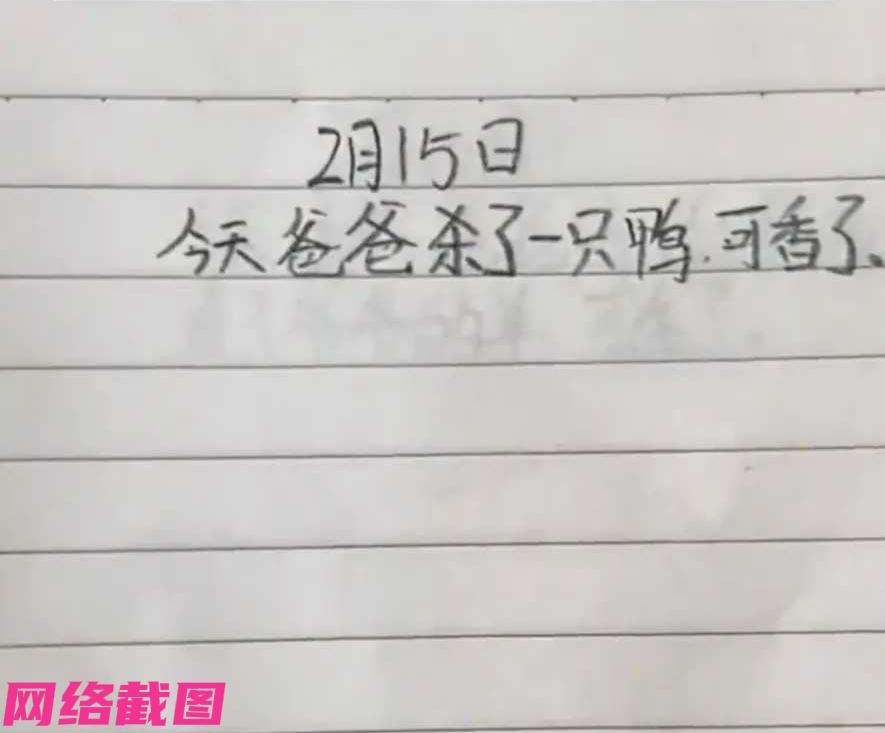 2月15日
今天爸爸杀了一只鸭.可香了、
网络截图